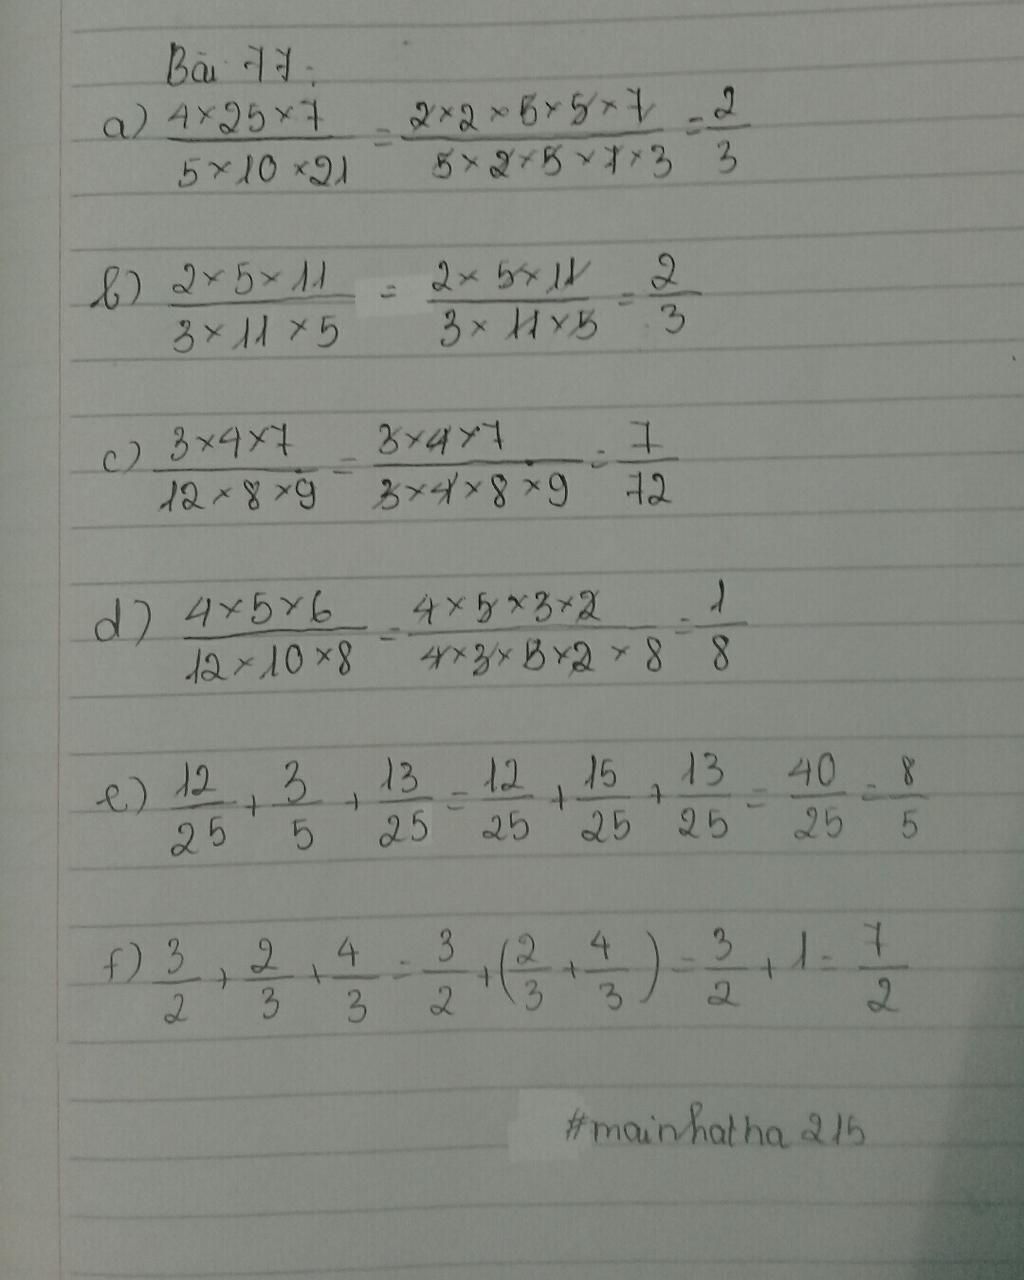 Bài 77:
a) 4×25×7 / 5×10×21 = 2×2×5×5×7 / 5×2×5×7×3 = 2/3
b) 2×5×11 / 3×11×5 = 2×5×11 / 3×11×5 = 2/3
c) 3×4×7 / 12×8×9 = 3×4×7 / 3×4×8×9 = 7/72
d) 4×5×6 / 12×10×8 = 4×5×3×2 / 4×3×5×2×8 = 1/8
e) 12/25 + 3/5 + 13/25 = 12/25 + 15/25 + 13/25 = 40/25 = 8/5
f) 3/2 + 2/3 + 4/3 = 3/2 + (2/3 + 4/3) = 3/2 + 1 = 7/2
#mainhatha215